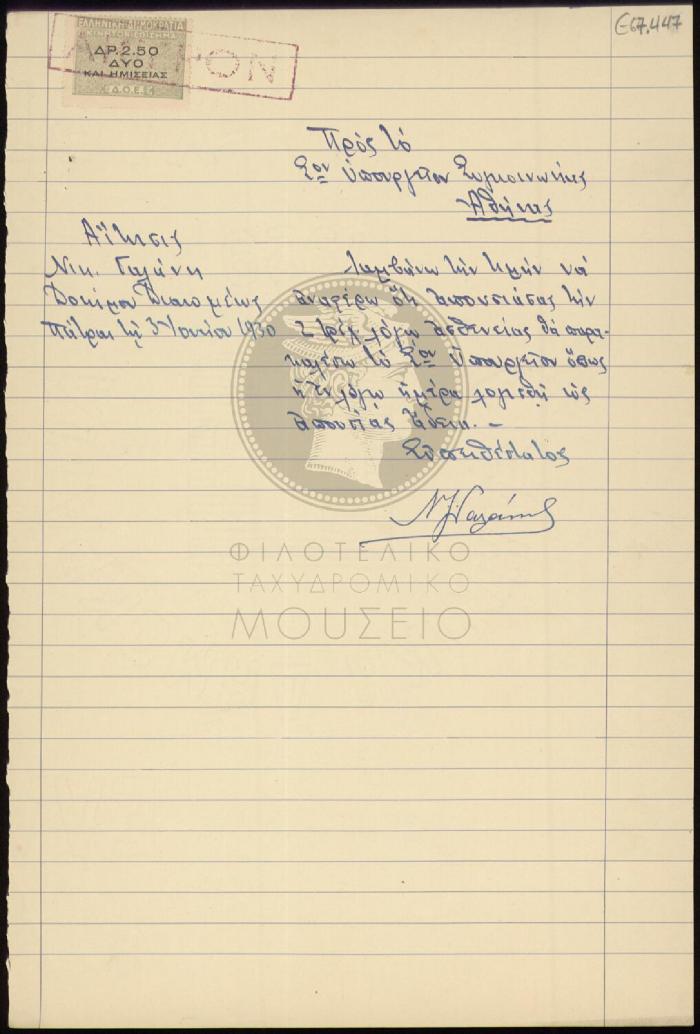 Ε 67.447
ΕΛΛΗΝΙΚΗ ΔΗΜΟΚΡΑΤΙΑ
ΚΙΝΗΤΟΝ ΕΠΙΣΗΜΑ
ΔΡ. 2.50
ΔΥΟ
ΚΑΙ ΗΜΙΣΕΙΑΣ
Δ.Ο.Ε.
Πρὸς τὸ
Σον Ὑπουργεῖον Συγκοινωνίας
Ἀθήνας
Αἴτησις
Νικ. Γαλάνη
Δοκίμου Διανομέως
Πάτραι τῇ 3 Ἰουνίου 1930
Λαμβάνω τὴν τιμὴν νὰ
ἀναφέρω ὅτι ἀπουσιάσας τὴν
2 τρέχ. λόγῳ ἀσθενείας θὰ παρα-
καλέσω τὸ Σον Ὑπουργεῖον ὅπως
ἡ ἐν λόγῳ ἡμέρα λογισθῇ ὡς
ἀπουσίας ἄδεια. –
Εὐπειθέστατος
Ν Γαλάνης
ΦΙΛΟΤΕΛΙΚΟ
ΤΑΧΥΔΡΟΜΙΚΟ
ΜΟΥΣΕΙΟ